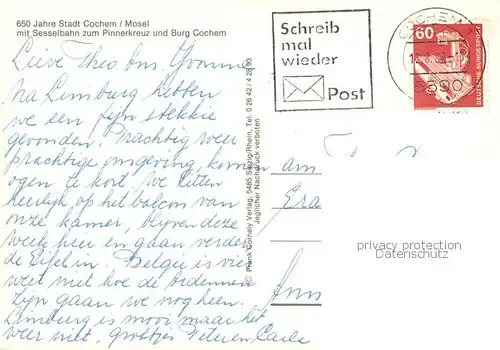 650 Jahre Stadt Cochem / Mosel
mit Sesselbahn zum Pinnerkreuz und Burg Cochem
Lieve Theo bm. Yvonne
Na Limburg hebben
we een fijn stekkie
gevonden. Prachtig weer
prachtige omgeving, komen
ogen te kort. We zitten
heerlijk op het balcon van
onze kamer, blijven deze
week hier en gaan verder
de Eifel in. Belgie is vies
weet niet hoe de Ardennen
zijn gaan we nog heen.
Limburg is mooi maar het
weer niet. groetjes Peter en Carla
© Frank Cornely Verlag, 5485 Sinzig/Rhein, Tel. 0 26 42 / 4 26 93
Jeglicher Nachdruck verboten
Schreib
mal
wieder
Post
COCHEM
5590
60
DEUTSCHE BUNDESPOST
am
privacy protection
Datenschutz